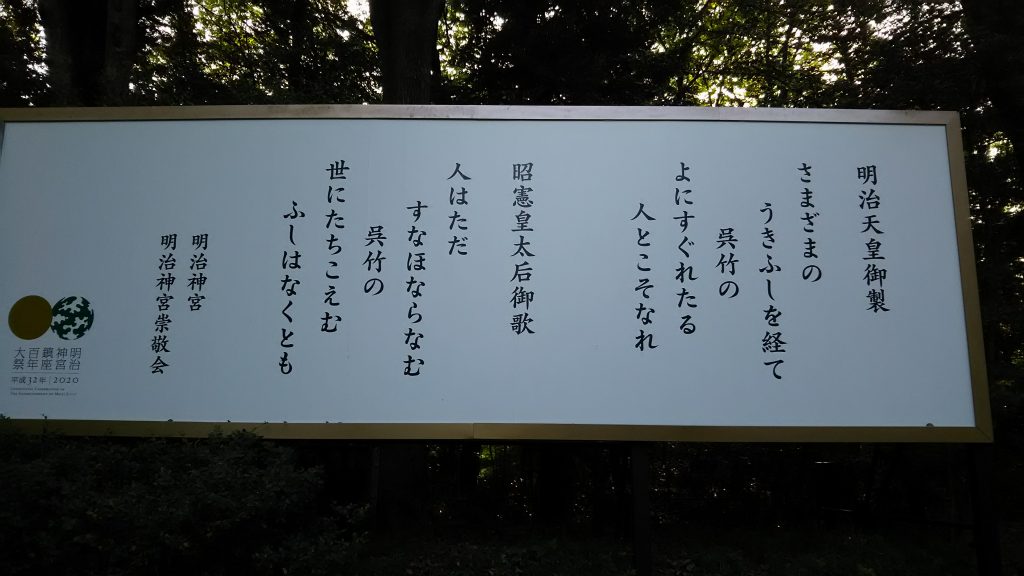 明治天皇御製
さまざまの
うきふしを経て
呉竹の
よにすぐれたる
人とこそなれ
昭憲皇太后御歌
人はただ
すなほならなむ
呉竹の
世にたちこえむ
ふしはなくとも
明治神宮
明治神宮崇敬会
明治
神宮
鎮座
百年
大祭
平成32年 | 2020